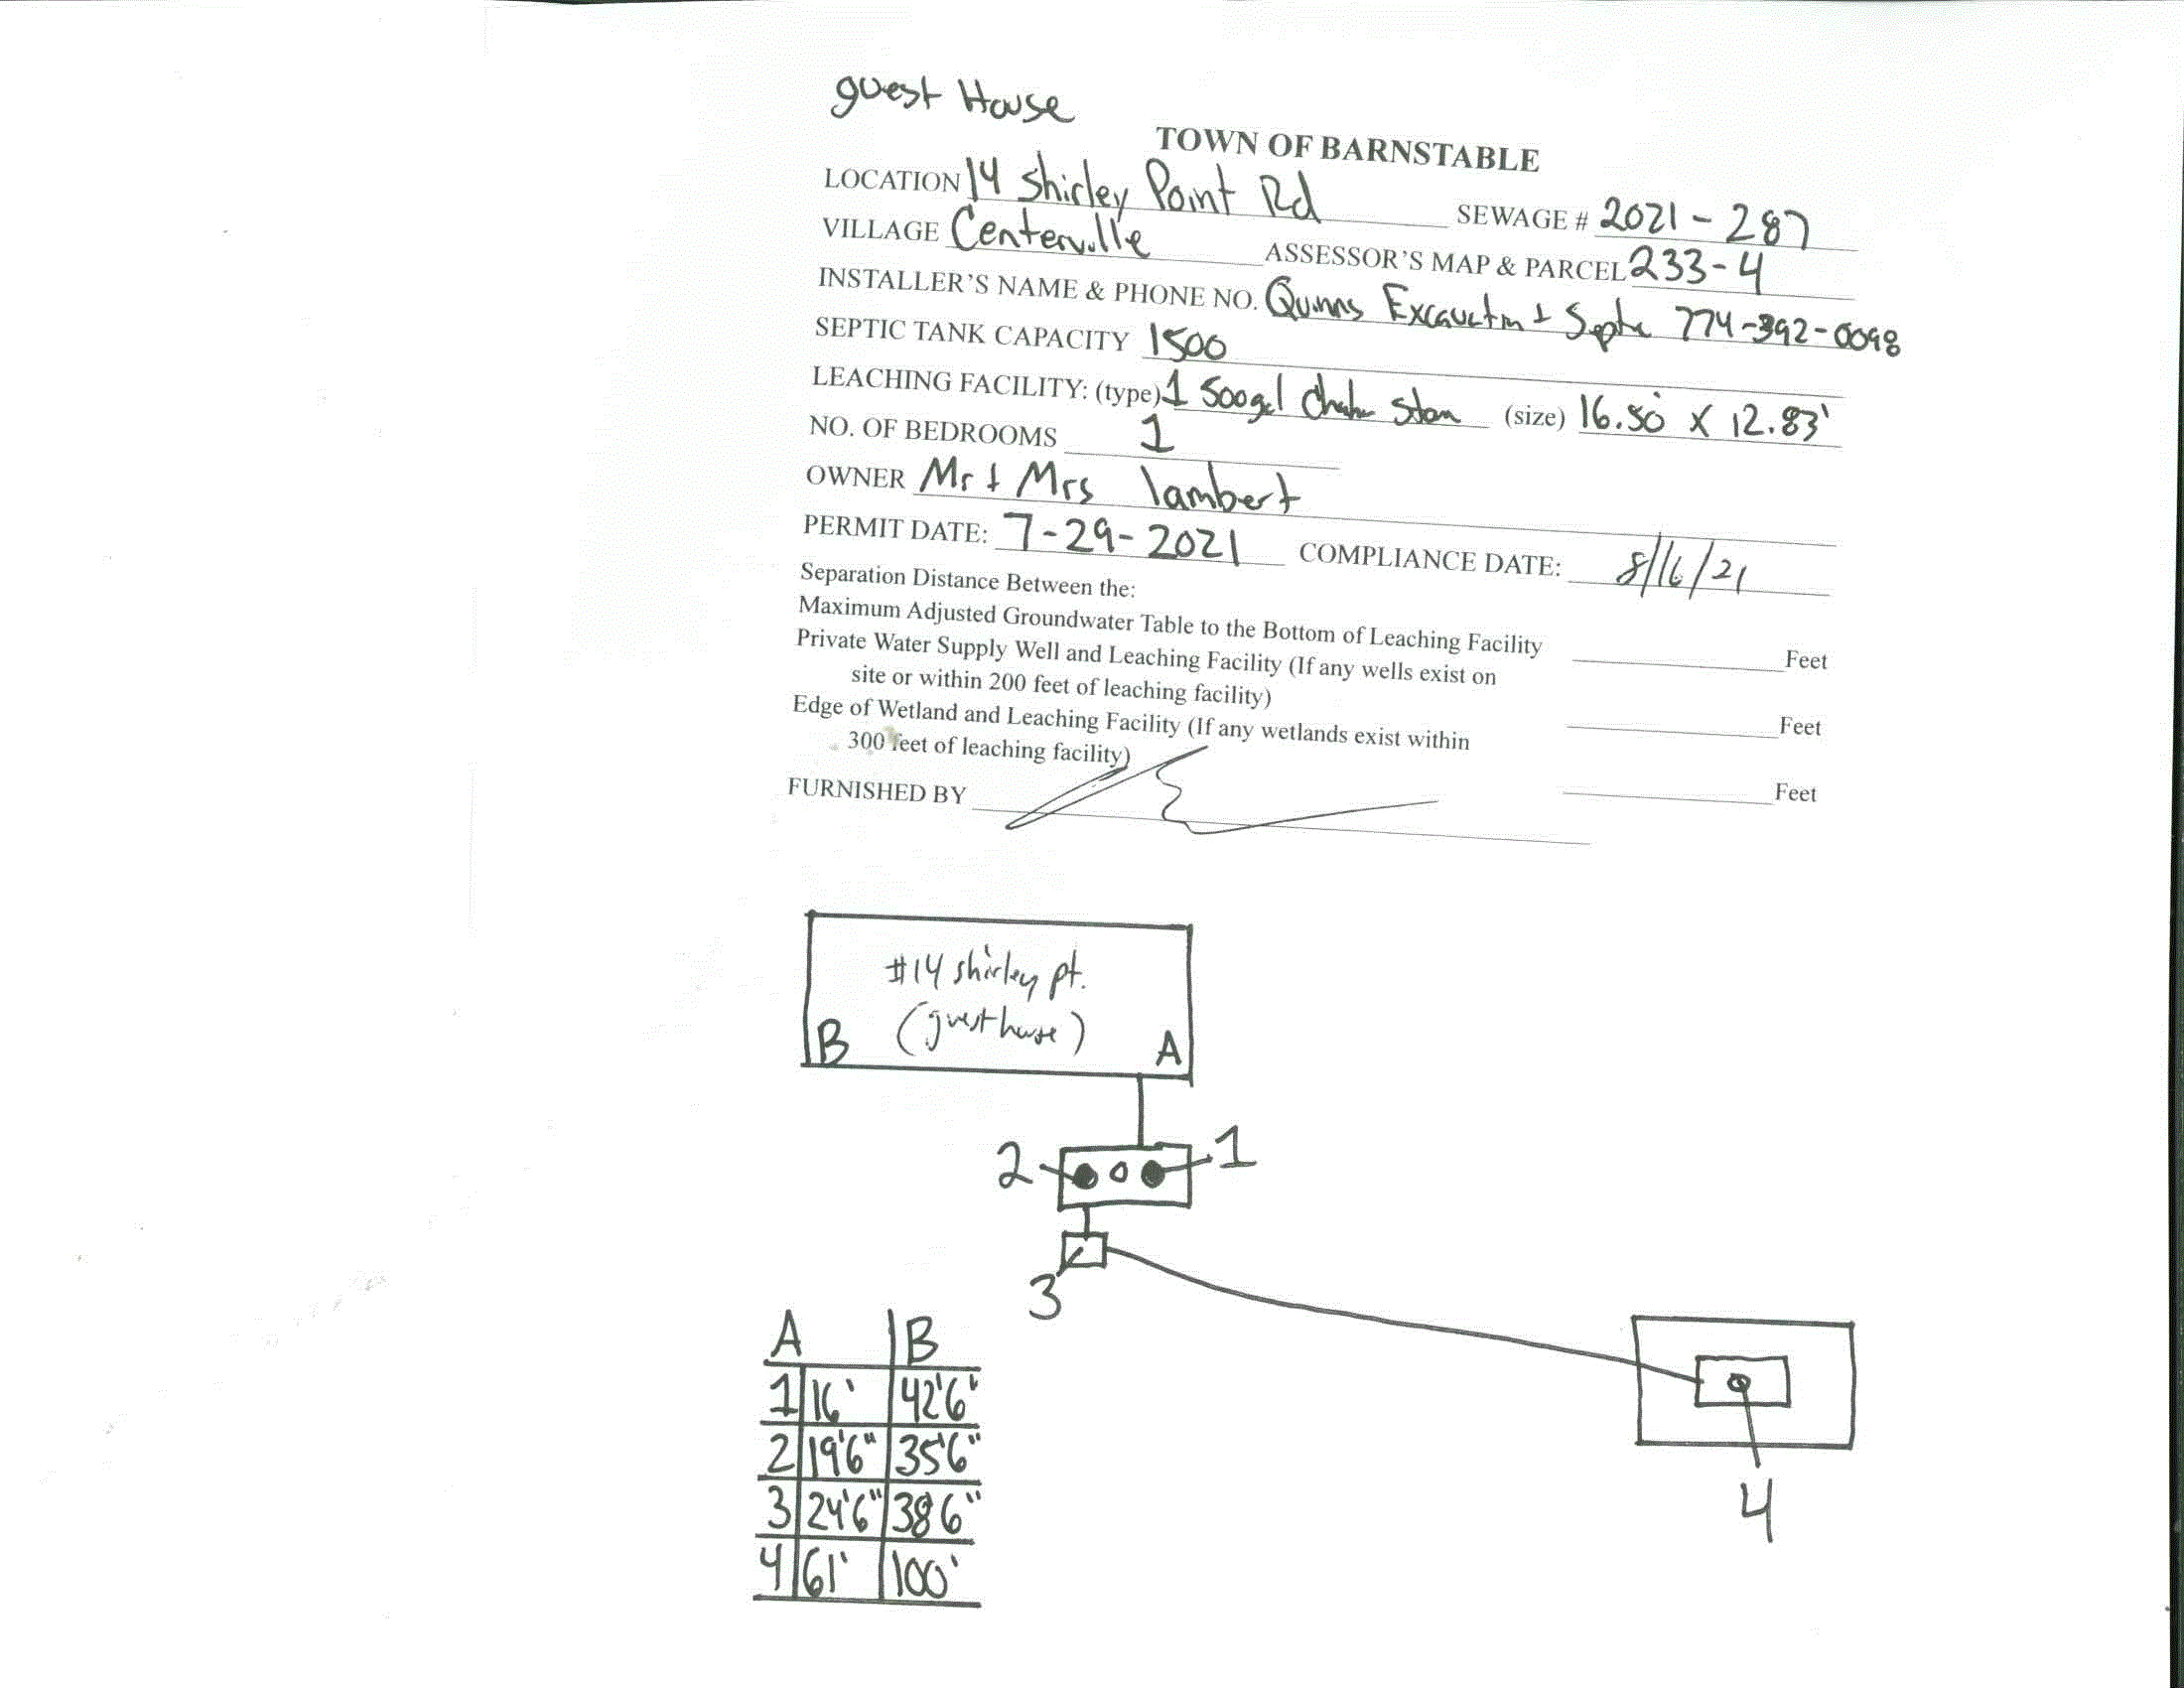 guest House
TOWN OF BARNSTABLE
LOCATION 14 Shirley Point Rd SEWAGE # 2021-287
VILLAGE Centerville ASSESSOR'S MAP & PARCEL 233-4
INSTALLER'S NAME & PHONE NO. Quinns Excavation & Septic 774-392-0098
SEPTIC TANK CAPACITY 1500
LEACHING FACILITY: (type) 1 500gal (size) 16.50 x 12.83'
NO. OF BEDROOMS 1
OWNER Mr & Mrs lambert
PERMIT DATE: 7-29-2021 COMPLIANCE DATE: 8/16/21
Separation Distance Between the:
Maximum Adjusted Groundwater Table to the Bottom of Leaching Facility Feet
Private Water Supply Well and Leaching Facility (If any wells exist on
site or within 200 feet of leaching facility) Feet
Edge of Wetland and Leaching Facility (If any wetlands exist within
300 feet of leaching facility) Feet
FURNISHED BY
#14 shirley pt.
(guest house)
B A
2 1
3
4
A B
1 16' 42'6"
2 19'6" 35'6"
3 24'6" 38'6"
4 61' 100'